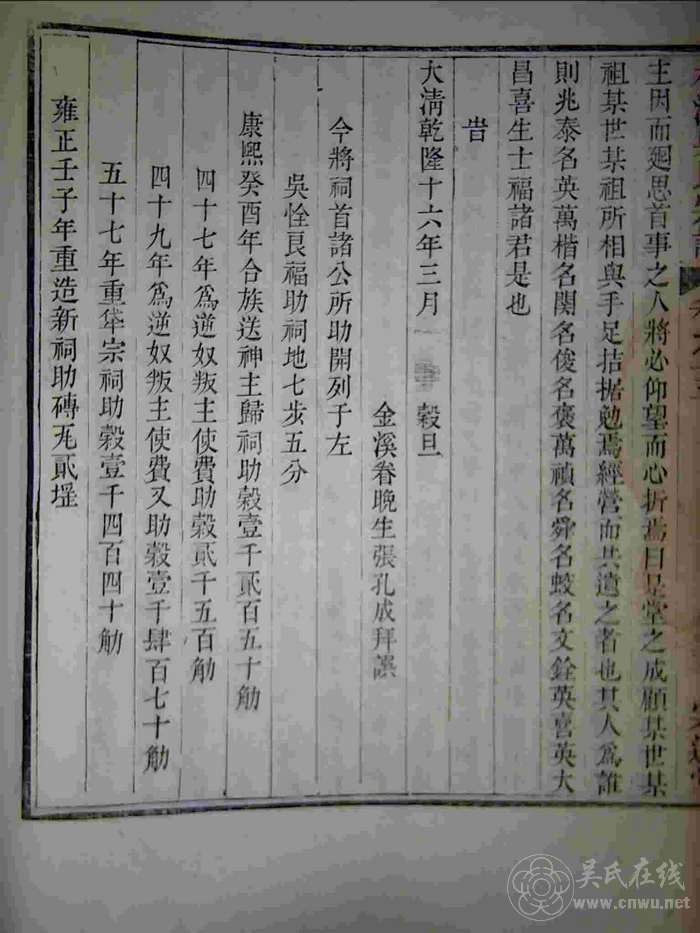 主因而廻思首事之人將必仰望而心折焉曰是堂之成顧某世某
祖某世某祖所相與手足拮据勉焉經營而共遺之者也其人爲誰
則兆泰名英萬楷名閔名俊名褒萬禎名舜名蛟名文銓英喜英大
昌喜生士福諸君是也
旹
大淸乾隆十六年三月 穀旦
金溪眷晩生張孔成拜譔
今將祠首諸公所助開列于左
吳恮良福助祠地七步五分
康熙癸酉年合族送神主歸祠助穀壹千貳百五十觔
四十七年爲逆奴叛主使費助穀貳千五百觔
四十九年爲逆奴叛主使費又助穀壹千肆百七十觔
五十七年重造宗祠助穀壹千四百四十觔
雍正壬子年重造新祠助磚瓦貳
吴氏在线
www.cnwu.net